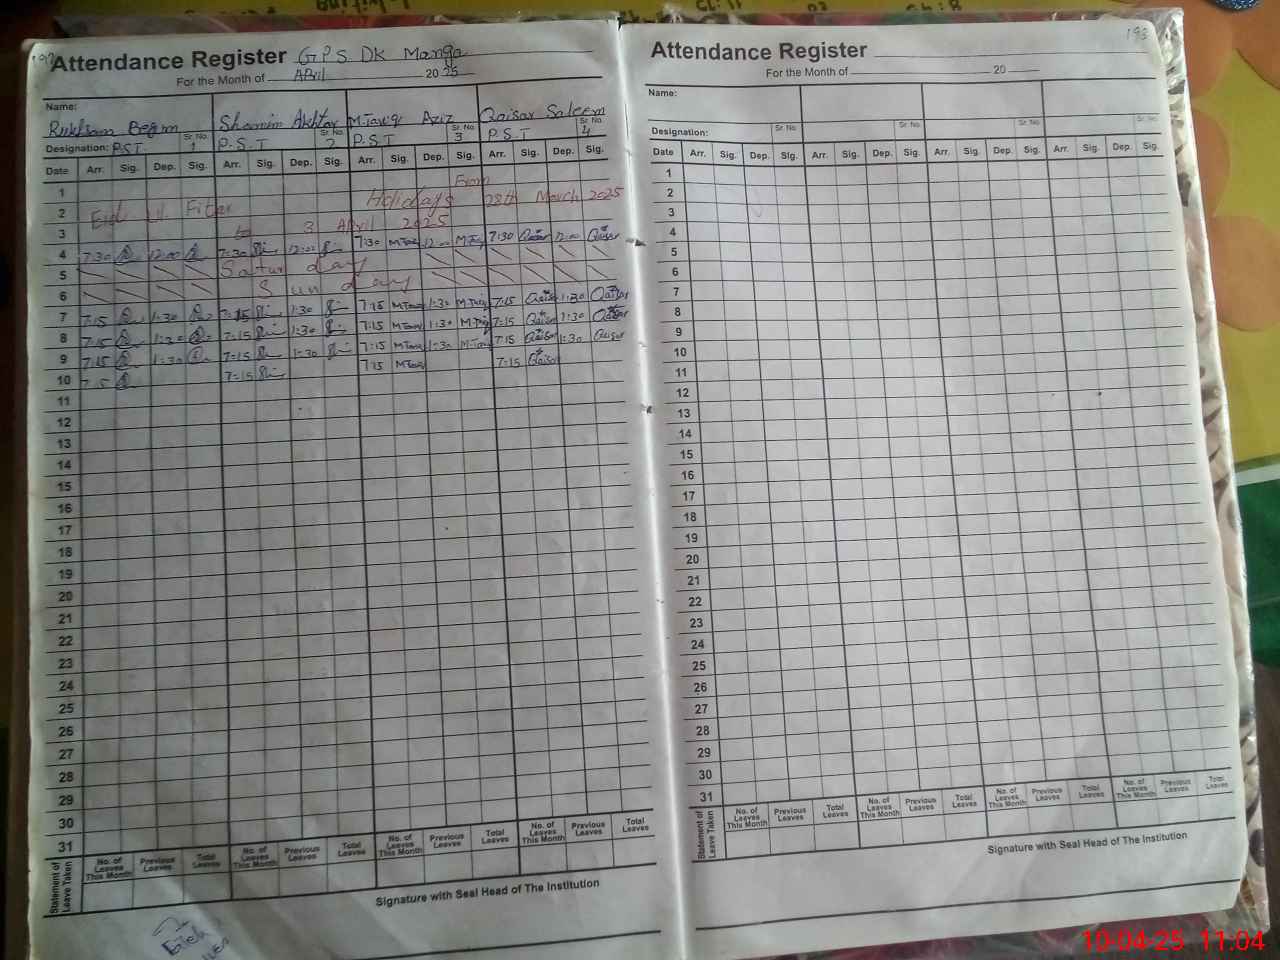 Attendance Register GPS DK Manga
For the Month of April 2025
Name:
Rukhsam Begum Shamim Akhtar M.Tariq Aziz Qaisar Saleem
Sr. No. 1 Sr. No. 2 Sr. No. 3 Sr. No. 4
Designation: P.S.T. P.S.T P.S.T P.S.T
Date Arr. Sig. Dep. Sig. Arr. Sig. Dep. Sig. Arr. Sig. Dep. Sig. Arr. Sig. Dep. Sig.
1
2 Eid ul Fiter Holidays From 28th March 2025
3 to 3 April 2025
4 7:30 12:00 7:30 12:00 7:30 M.Tariq 12:00 M.Tariq 7:30 Qaisar 12:00 Qaisar
5 Saturday
6 Sunday
7 7:15 1:30 7:15 1:30 7:15 M.Tariq 1:30 M.Tariq 7:15 Qaisar 1:30 Qaisar
8 7:15 1:30 7:15 1:30 7:15 M.Tariq 1:30 M.Tariq 7:15 Qaisar 1:30 Qaisar
9 7:15 1:30 7:15 1:30 7:15 M.Tariq 1:30 M.Tariq 7:15 Qaisar 1:30 Qaisar
10 7:15 7:15 7:15 M.Tariq 7:15 Qaisar
11
12
13
14
15
16
17
18
19
20
21
22
23
24
25
26
27
28
29
30
31
Statement of Leave Taken
No. of Leaves This Month Previous Leaves Total Leaves No. of Leaves This Month Previous Leaves Total Leaves No. of Leaves This Month Previous Leaves Total Leaves No. of Leaves This Month Previous Leaves Total Leaves
Signature with Seal Head of The Institution
193
Attendance Register
For the Month of 20
Name:
Sr. No. Sr. No. Sr. No. Sr. No.
Designation:
Date Arr. Sig. Dep. Sig. Arr. Sig. Dep. Sig. Arr. Sig. Dep. Sig. Arr. Sig. Dep. Sig.
1
2
3
4
5
6
7
8
9
10
11
12
13
14
15
16
17
18
19
20
21
22
23
24
25
26
27
28
29
30
31
Statement of Leave Taken
No. of Leaves This Month Previous Leaves Total Leaves No. of Leaves This Month Previous Leaves Total Leaves No. of Leaves This Month Previous Leaves Total Leaves No. of Leaves This Month Previous Leaves Total Leaves
Signature with Seal Head of The Institution
10-04-25 11:04